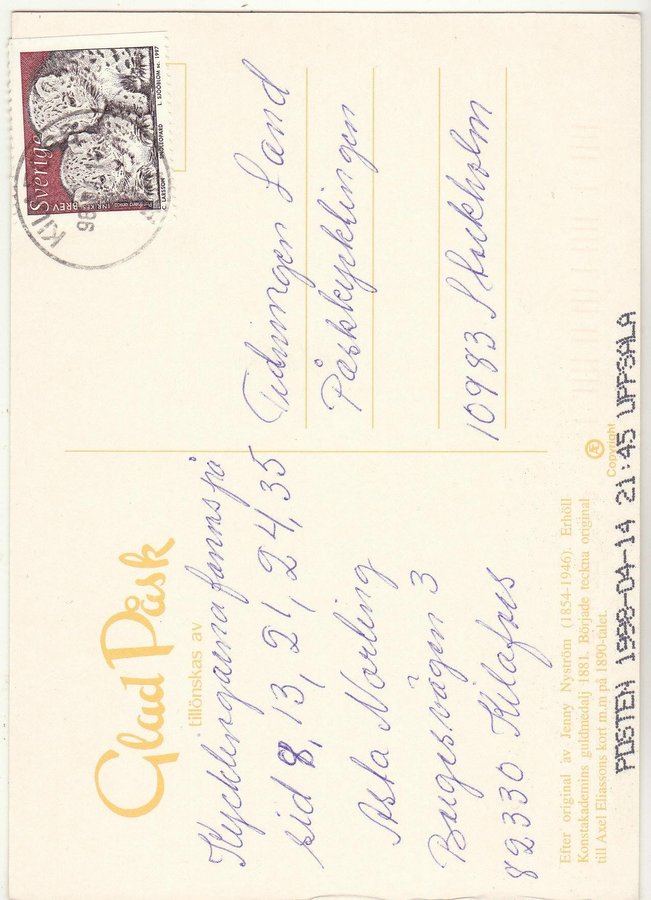 Glad Påsk
tillönskas av
Kycklingarna fanns på
sid 8, 13, 21, 24, 35
Asta Norling
82330 Kilafors
Tidningen Land
Påskkycklingen
10983 Stockholm
Sverige
INRIKES BREV
L. SJÖÖBLOM sc. 1997
C. LARSSON
SNÖLEOPARD
98
Efter original av Jenny Nyström (1854-1946). Erhöll
Konstakademins guldmedalj 1881. Började teckna original
till Axel Eliassons kort m.m på 1890-talet.
Copyright
POSTEN 1998-04-14 21:45 UPPSALA